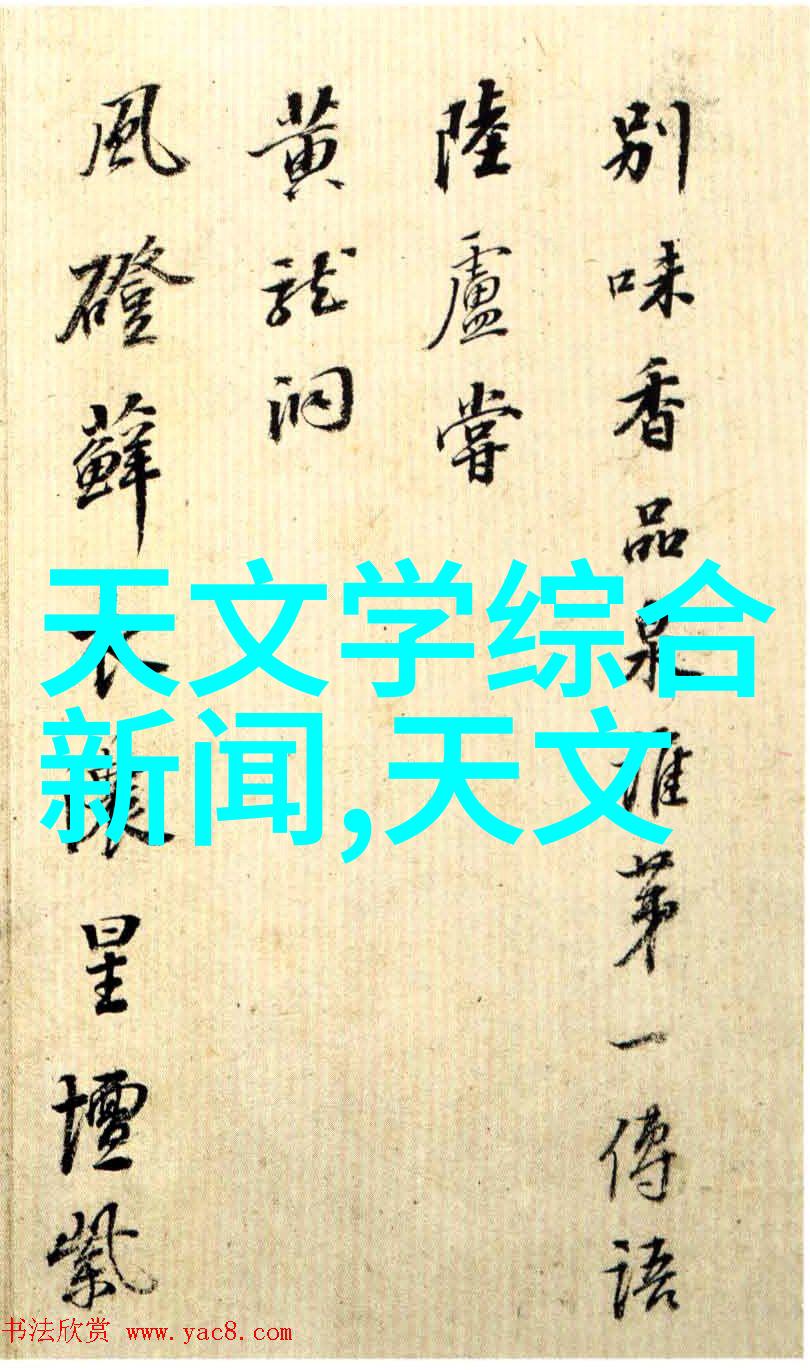 别味香品泉唯第一傳語
陸盧嘗
黄龍洞
風磴蘚衣濃星壇紫
天文学综合
新闻,天文
书法欣赏 www.yac8.com